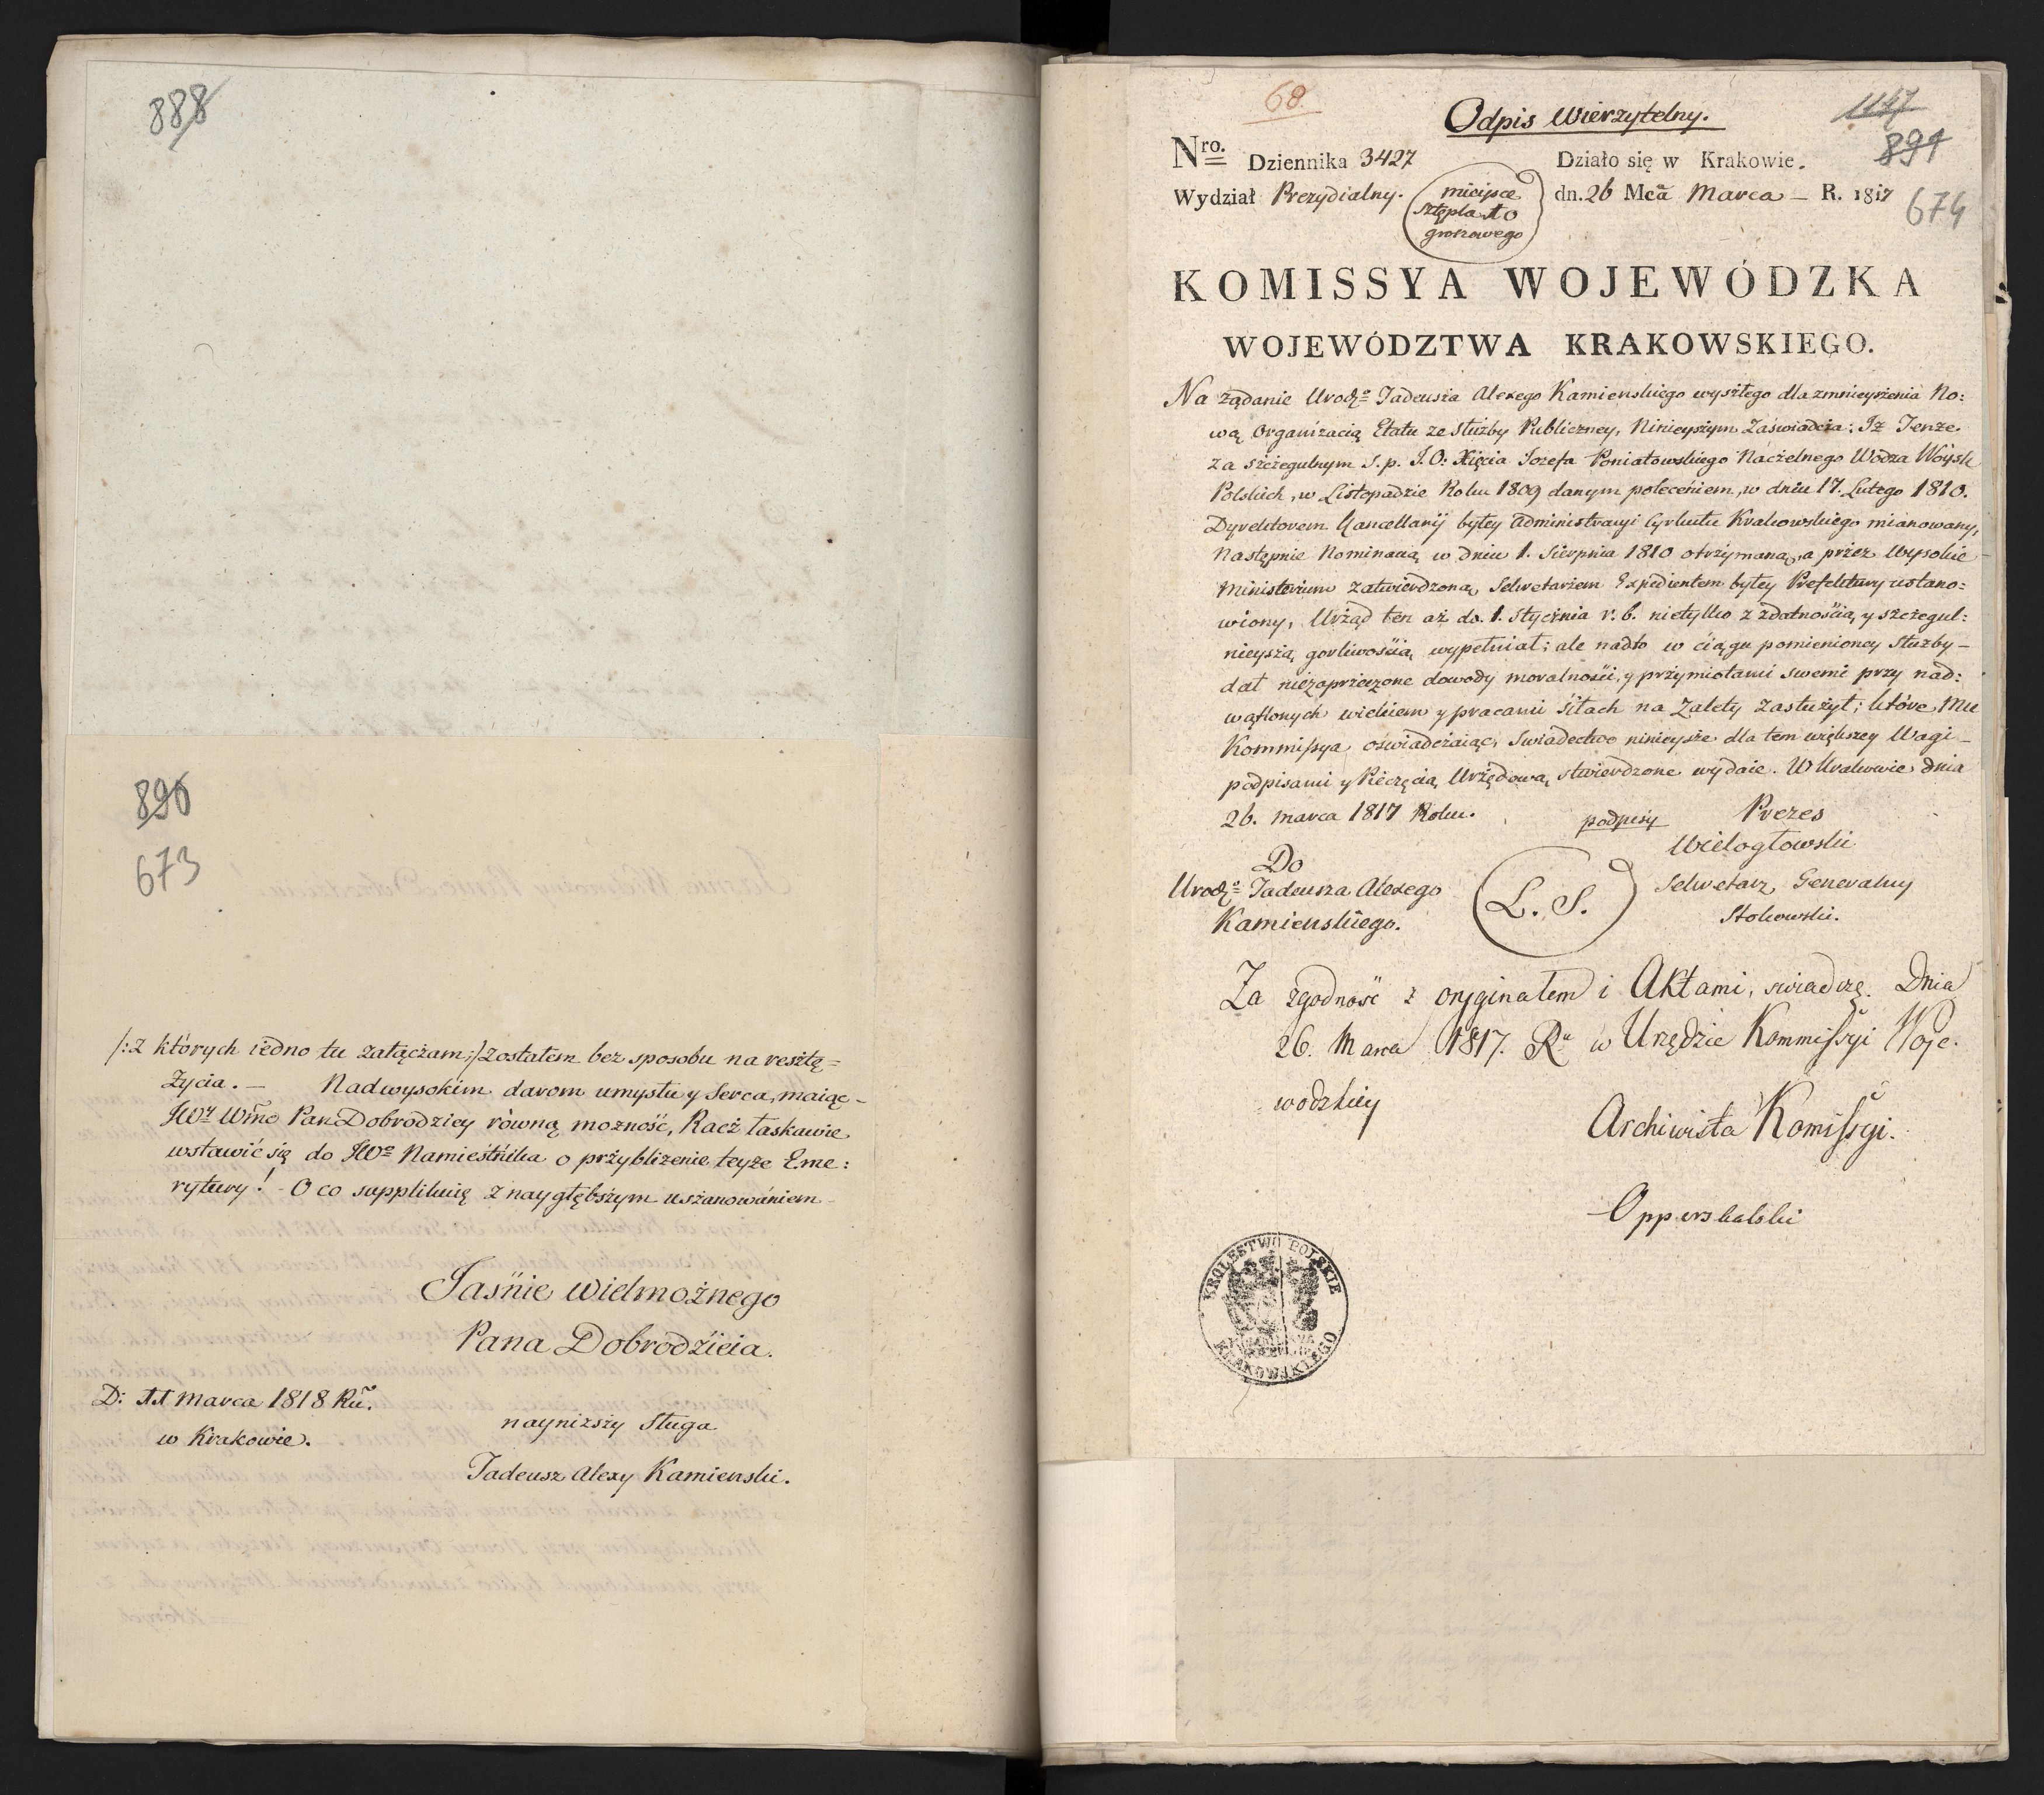 888
890
673
/:z których iedno tu załączam:/ zostałem bez sposobu na resztę=
Życia. — Nadwysokim darom umysłu y Serca, maiąc –
JWy Wmo Pan Dobrodziey równą możność, Racz łaskawie
wstawić się do JWo Namiestnika o przybliżenie teyże Eme:
rytury! O co supplikuię z naygłębszym uszanowaniem
Jaśnie wielmożnego
Pana Dobrodzieia.
D: 11 Marca 1818 Ru.
w Krakowie.
naynizszy Sługa
Tadeusz Alexy Kamienski.
68.
Odpis Wierzytelny.
1147
891
674
Nro. Dziennika 3427
Działo się w Krakowie.
Wydział Prezydialny.
miejsce
sztępla 10
groszowego
dn. 26 Mca Marca – R. 1817
KOMISSYA WOJEWÓDZKA
WOJEWÓDZTWA KRAKOWSKIEGO.
Na żądanie Urodz. Tadeusza Alexego Kamienskiego wyszłego dla zmnieyszenia No:
wą Organizacią Etatu ze służby Publiczney, Ninieyszym Zaświadcza: Iż Tenże
za szczegulnym S. p. J. O: Xięcia Jozefa Poniatowskiego Naczelnego Wodza Woysk
Polskich, w Listopadzie Roku 1809 danym poleceniem, w dniu 17. Lutego 1810.
Dyrektorem Kancellarij byłey Administracyi Cyrkułu Krakowskiego mianowany,
Następnie Nominacią w dniu 1. Sierpnia 1810 otrzymaną, a przez Wysokie
Ministerium Zatwierdzoną Sekretarzem Expedientem byłey Prefektury ustano:
wiony, Urząd ten aż do 1. Stycznia r. b. nietylko z zdatnością y szczegul:
nieyszą gorliwością wypełniał; ale nadto w ciągu pomienioney Służby –
dał niezaprzeczone dowody moralności, y przymiotami swemi przy nad:
wątlonych wiekiem y pracami siłach na Zalety zasłużył; które Mu
Kommissya oświadczaiąc, Świadectwo ninieysze dla tem większey Wagi –
podpisami y Pieczęcią Urzędową stwierdzone wydaie. W Krakowie dnia
26. Marca 1817 Roku.
podpisy
Prezes
Wielogłowski
Do
Urodz. Tadeusza Alexego
Kamienskiego.
L. S.
Sekretarz Generalny
Stokowski.
Za zgodność z oryginałem i Aktami, swiadczę. Dnia
26. Marca 1817. Ru w Urzędzie Kommissyi Woje.
wodzkiey
Archiwista Komissyi.
Opperskalski
KRÓLESTWO POLSKIE
KRAKOWSKIEGO